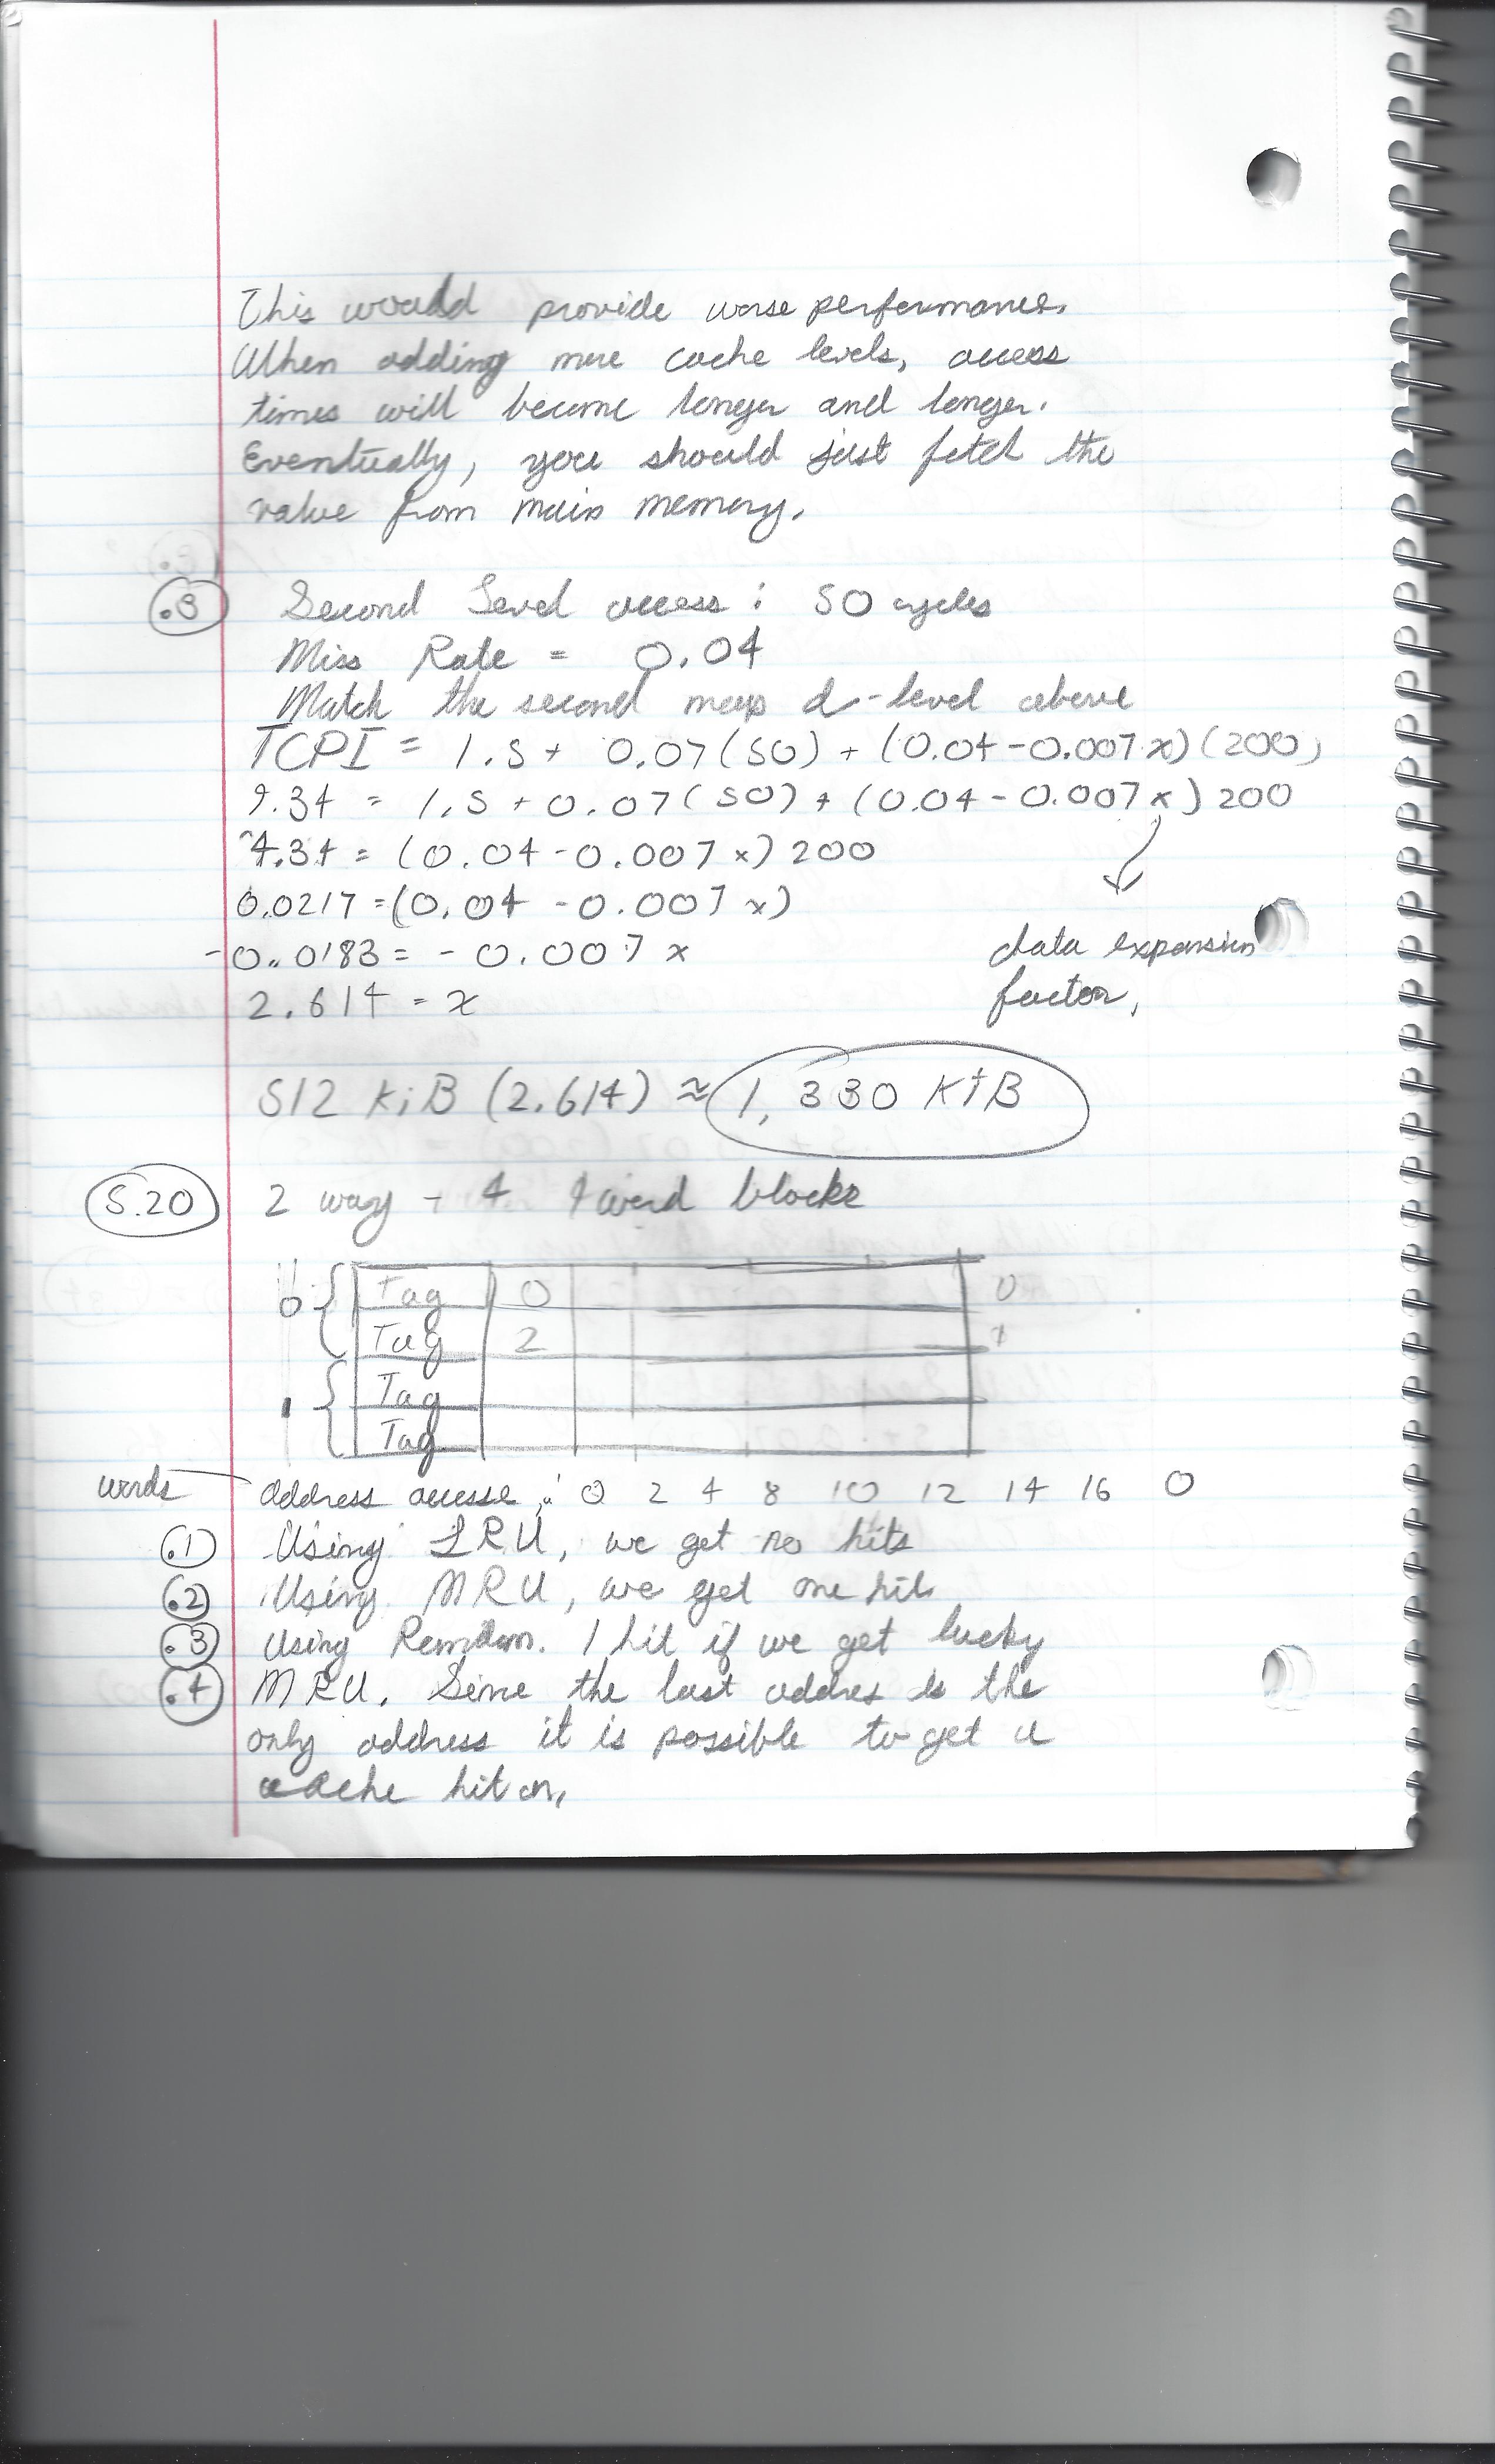 This would provide worse performance.
When adding more cache levels, access
times will become longer and longer.
Eventually, you should just fetch the
value from main memory.
.3 Second Level access : 50 cycles
Miss Rate = 0.04
Match the second d-level above
TCPI = 1.5 + 0.07(50) + (0.04 - 0.007x)(200)
9.34 = 1.5 + 0.07(50) + (0.04 - 0.007x)200
4.34 = (0.04 - 0.007x)200
0.0217 = (0.04 - 0.007x)
-0.0183 = -0.007x
data expansion
2.614 = x
factor,
512 KiB (2.614) ≈ 1,330 KiB
5.20 2 way - 4 1 word blocks
0 Tag 0 0
Tag 2
1 Tag
Tag
words address accesse : 0 2 4 8 10 12 14 16 0
.1 Using LRU, we get no hits
.2 Using MRU, we get one hit
.3 Using Random. 1 hit if we get lucky
.4 MRU. Since the last addres is the
only address it is possible to get a
cache hit on,